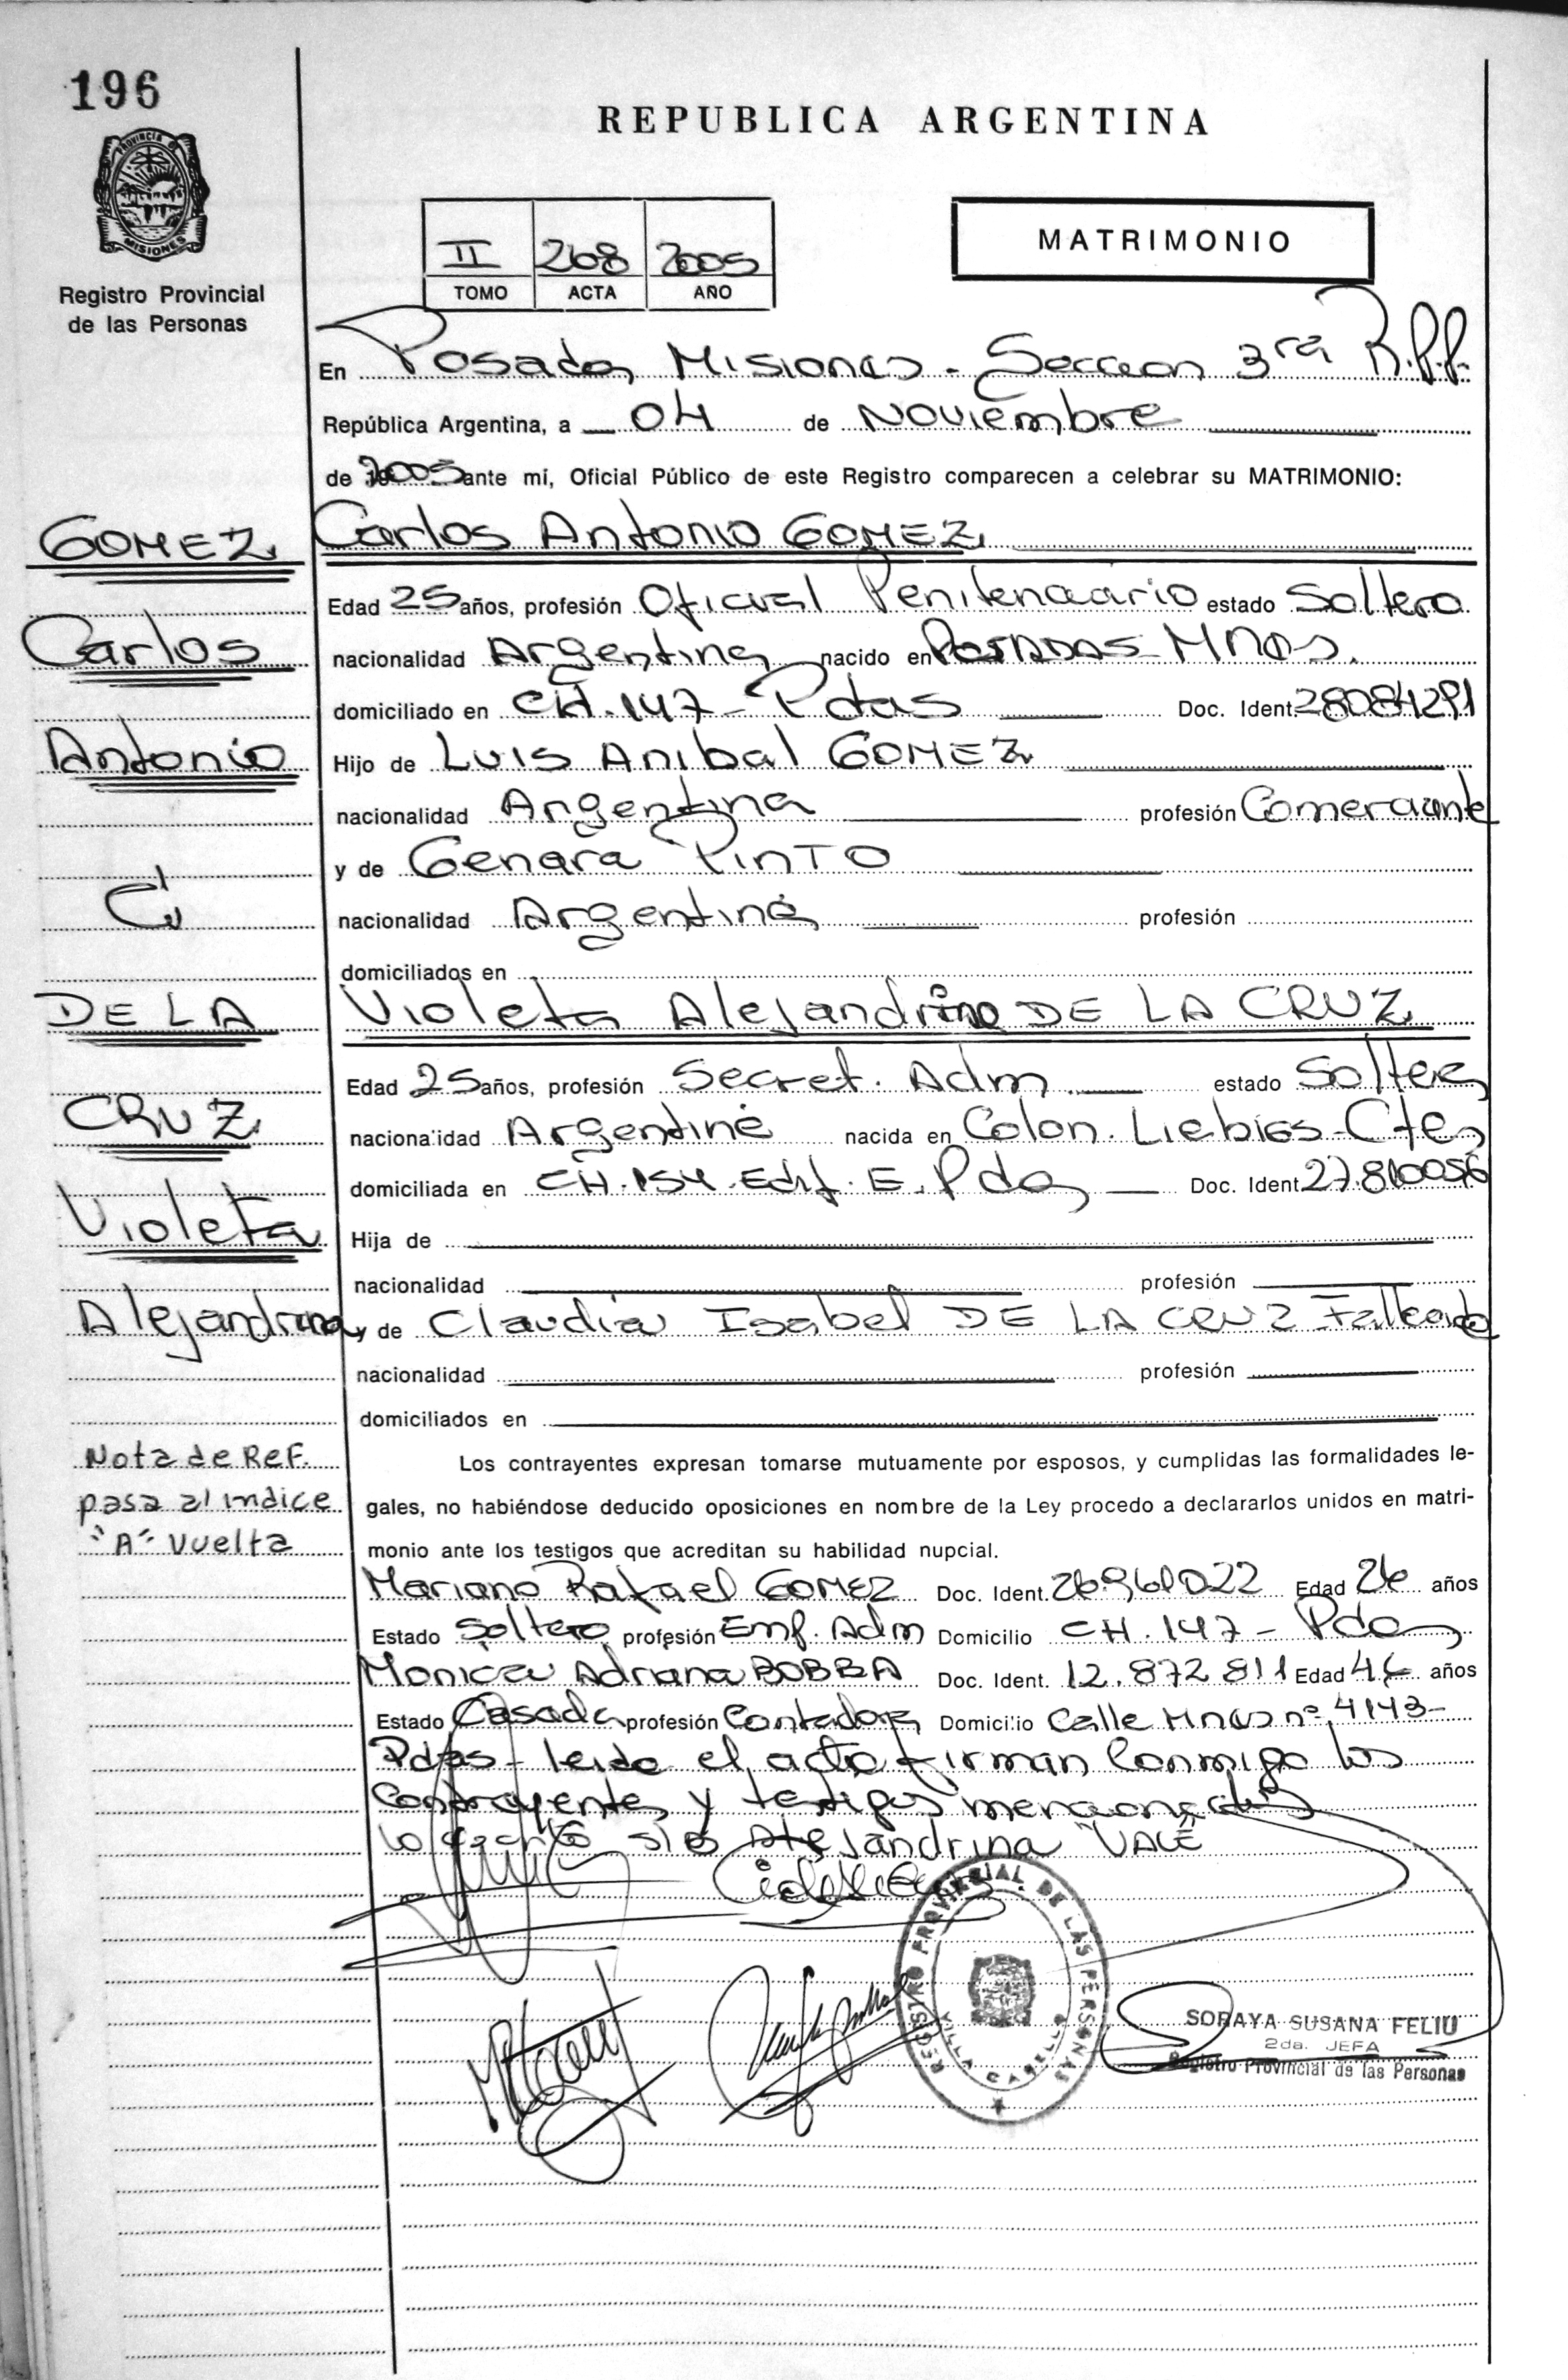 196
REPUBLICA ARGENTINA
PROVINCIA DE
MISIONES
Registro Provincial
de las Personas
II 268 2005
TOMO ACTA AÑO
MATRIMONIO
En Posadas, Misiones. Seccion 3ra R.P.P.
República Argentina, a 04 de Noviembre
de 2005 ante mí, Oficial Público de este Registro comparecen a celebrar su MATRIMONIO:
GOMEZ Carlos Antonio GOMEZ
Edad 25 años, profesión Oficial Penitenciario estado Soltero
Carlos nacionalidad Argentina nacido en POSADAS-Mnes.
domiciliado en CH.147-Pdas Doc. Ident. 28084291
Antonio Hijo de Luis Anibal GOMEZ
nacionalidad Argentina profesión Comerciante
y de Genara PINTO
C/ nacionalidad Argentina profesión
domiciliados en
DE LA Violeta Alejandrina DE LA CRUZ
Edad 25 años, profesión Secret. Adm estado Soltera
CRUZ nacionalidad Argentina nacida en Colon. Liebigs-Ctes
domiciliada en CH.154.Edif.E.Pdas Doc. Ident. 27.810056
Violeta Hija de
nacionalidad profesión
Alejandrina y de Claudia Isabel DE LA CRUZ
nacionalidad profesión
domiciliados en
Nota de Ref. Los contrayentes expresan tomarse mutuamente por esposos, y cumplidas las formalidades le-
pasa al indice gales, no habiéndose deducido oposiciones en nombre de la Ley procedo a declararlos unidos en matri-
"A" Vuelta monio ante los testigos que acreditan su habilidad nupcial.
Mariano Rafael GOMEZ Doc. Ident. 26.961.022 Edad 26 años
Estado Soltero profesión Emp. Adm Domicilio CH.147-Pdas
Monica Adriana BOBBA Doc. Ident. 12.872.811 Edad 46 años
Estado Casada profesión Contadora Domicilio Calle Mnes nº 4143-
Pdas-leido el acta firman conmigo los
Contrayentes y testigos mencionados
lo escrito s/b Alejandrina "VALE
REGISTRO PROVINCIAL DE LAS PERSONAS
VILLA CABELLO
SORAYA SUSANA FELIU
2da. JEFA
Registro Provincial de las Personas